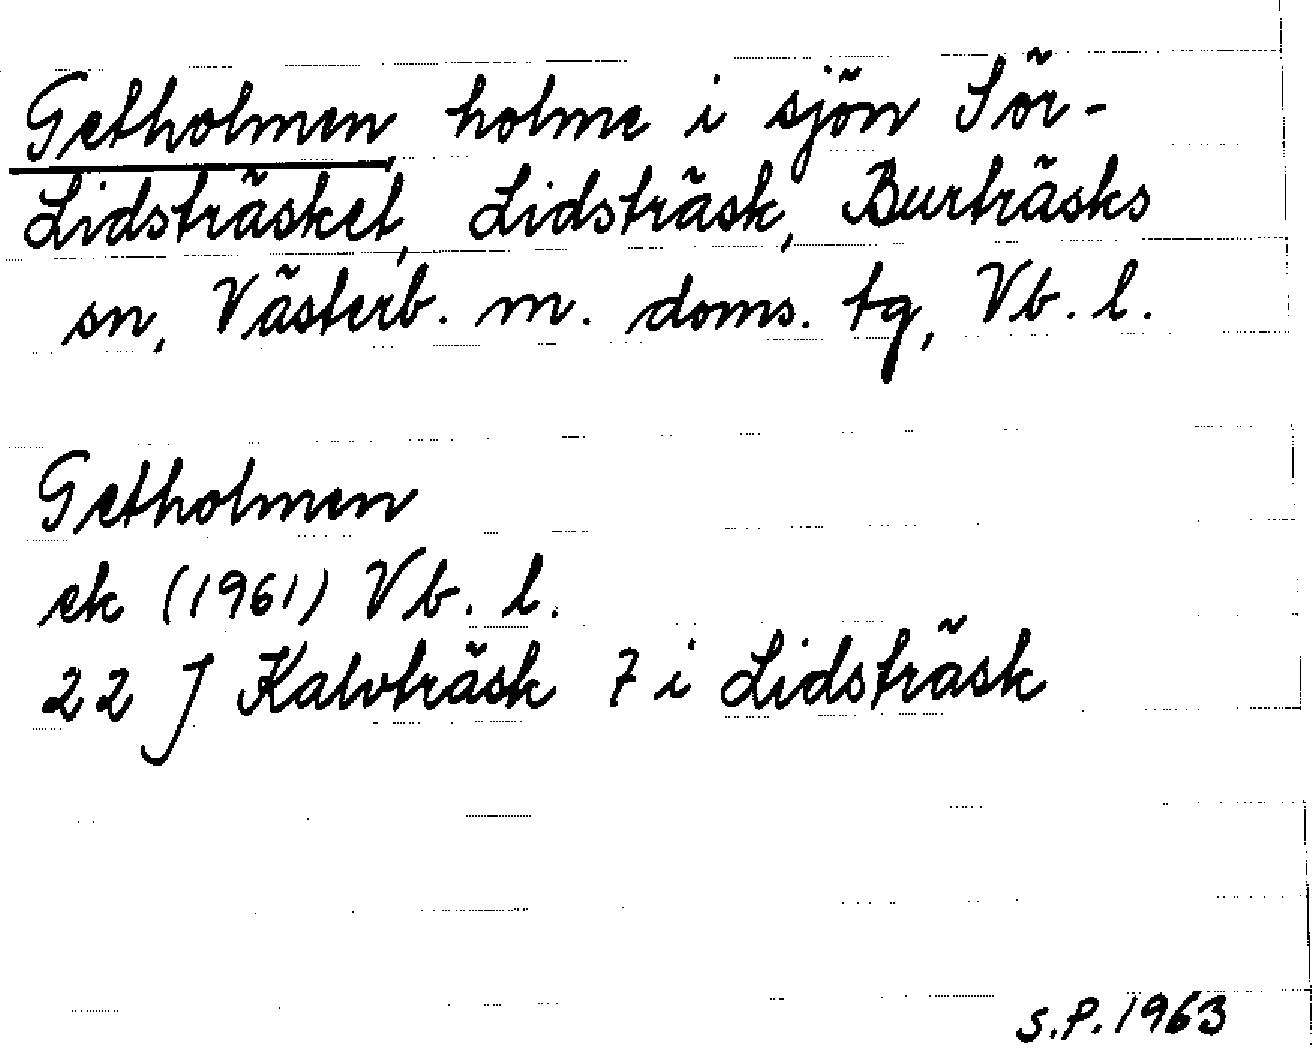 Getholmen, holme i sjön Sör-
Lidsträsket, Lidsträsk, Burträsks
sn, Västerb. m. doms. tg, Vb. l.
Getholmen
ek (1961) Vb. l.
22 J Kalvträsk 7 i Lidsträsk
S.P. 1963